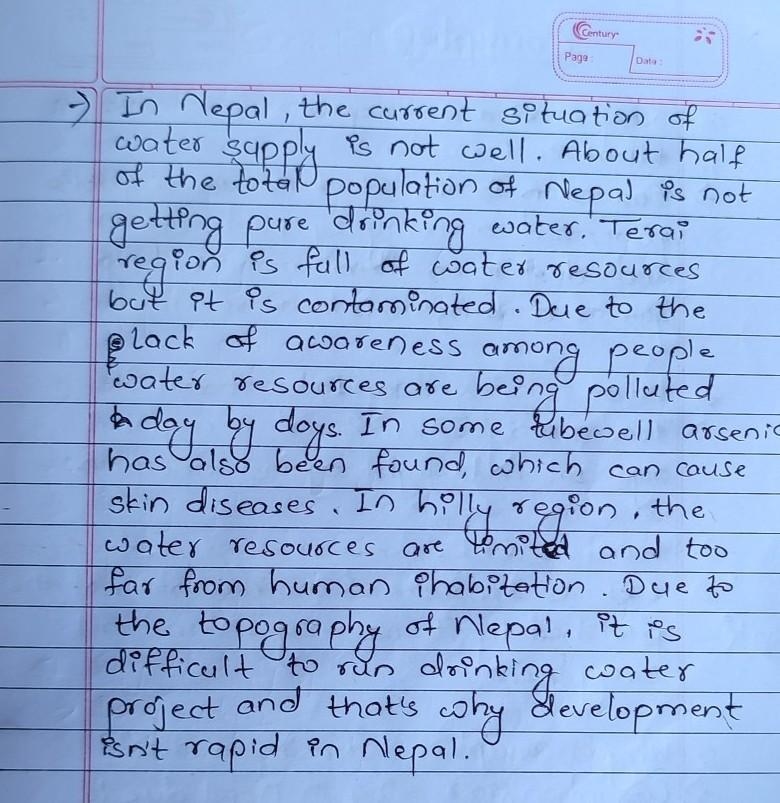 Century
Page :
Date :
→ In Nepal, the current situation of
water supply is not well. About half
of the total population of Nepal is not
getting pure drinking water. Terai
region is full of water resources
but it is contaminated. Due to the
lack of awareness among people
water resources are being polluted
day by days. In some tubewell arsenic
has also been found, which can cause
skin diseases. In hilly region, the
water resources are limited and too
far from human ihabitation. Due to
the topography of Nepal, it is
difficult to run drinking water
project and that's why development
isn't rapid in Nepal.